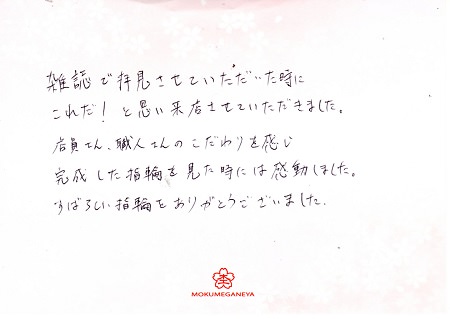 雑誌で拝見させていただいた時に
これだ！と思い来店させていただきました。
店員さん、職人さんのこだわりを感じ
完成した指輪を見た時には感動しました。
すばらしい指輪をありがとうございました.
MOKUMEGANEYA